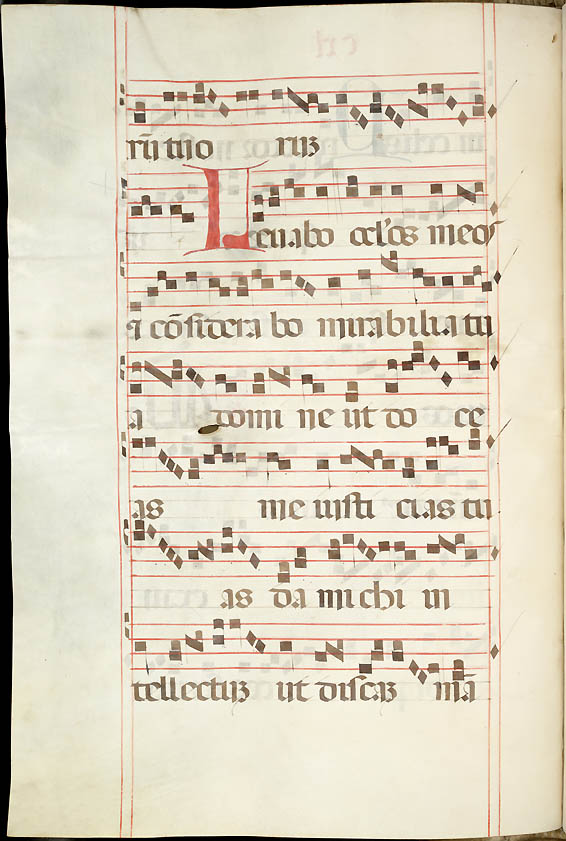 rū tuo rıʒ
Leuabo oclōs meos
⁊ cōſidera bo mirabilia tu
a domi ne ut do ce
as me iuſti cias tu
as da mi chi in
tellectuʒ ut diſcaʒ mā